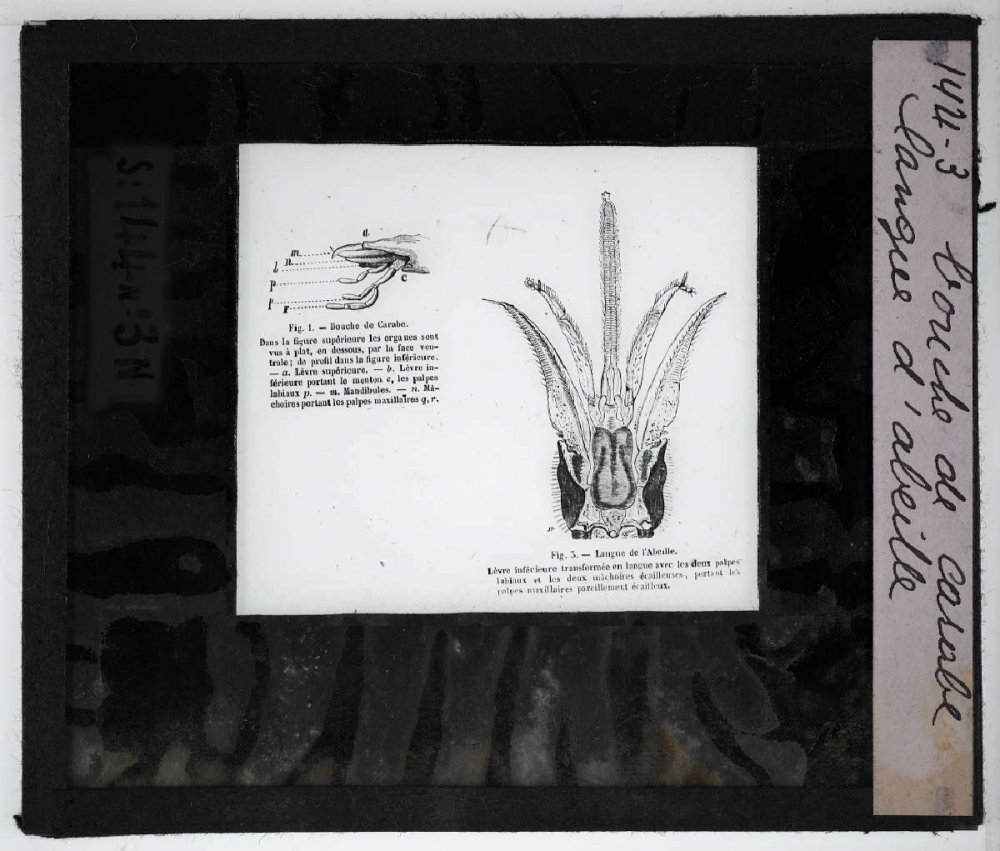 a
m
n
l
p
c
r
Fig. 1. — Bouche de Carabe.
Dans la figure supérieure les organes sont
vus à plat, en dessous, par la face ven-
trale; de profil dans la figure inférieure.
— a. Lèvre supérieure. — b. Lèvre in-
férieure portant le menton c, les palpes
labiaux p. — m. Mandibules. — n. Mâ-
choires portant les palpes maxillaires q, r.
Fig. 3. — Langue de l'Abeille.
Lèvre inférieure transformée en langue avec les deux palpes
labiaux et les deux mâchoires écailleuses, portant les
palpes maxillaires pareillement écailleux.
144-3 bouche de carabe
langue d'abeille
S:144N:3N